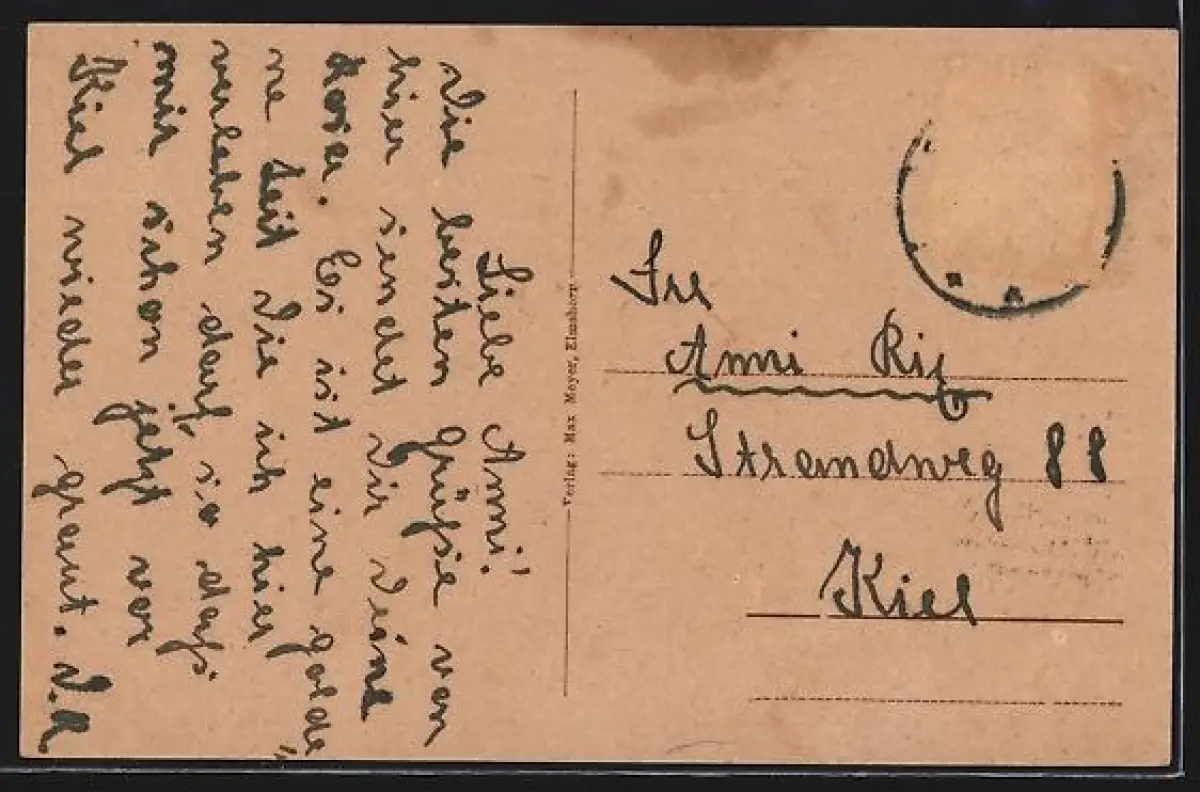 Liebe Anni!
Die besten Grüße von
hier sendet Dir Deine
Es ist eine golde
ne Zeit die ich hier
verleben darf, so daß
mir schon jetzt vor
Kiel wieder graut. D.O.
Verlag: Max Meyer, Elmshorn
Frl
Anni
Strandweg 88
Kiel